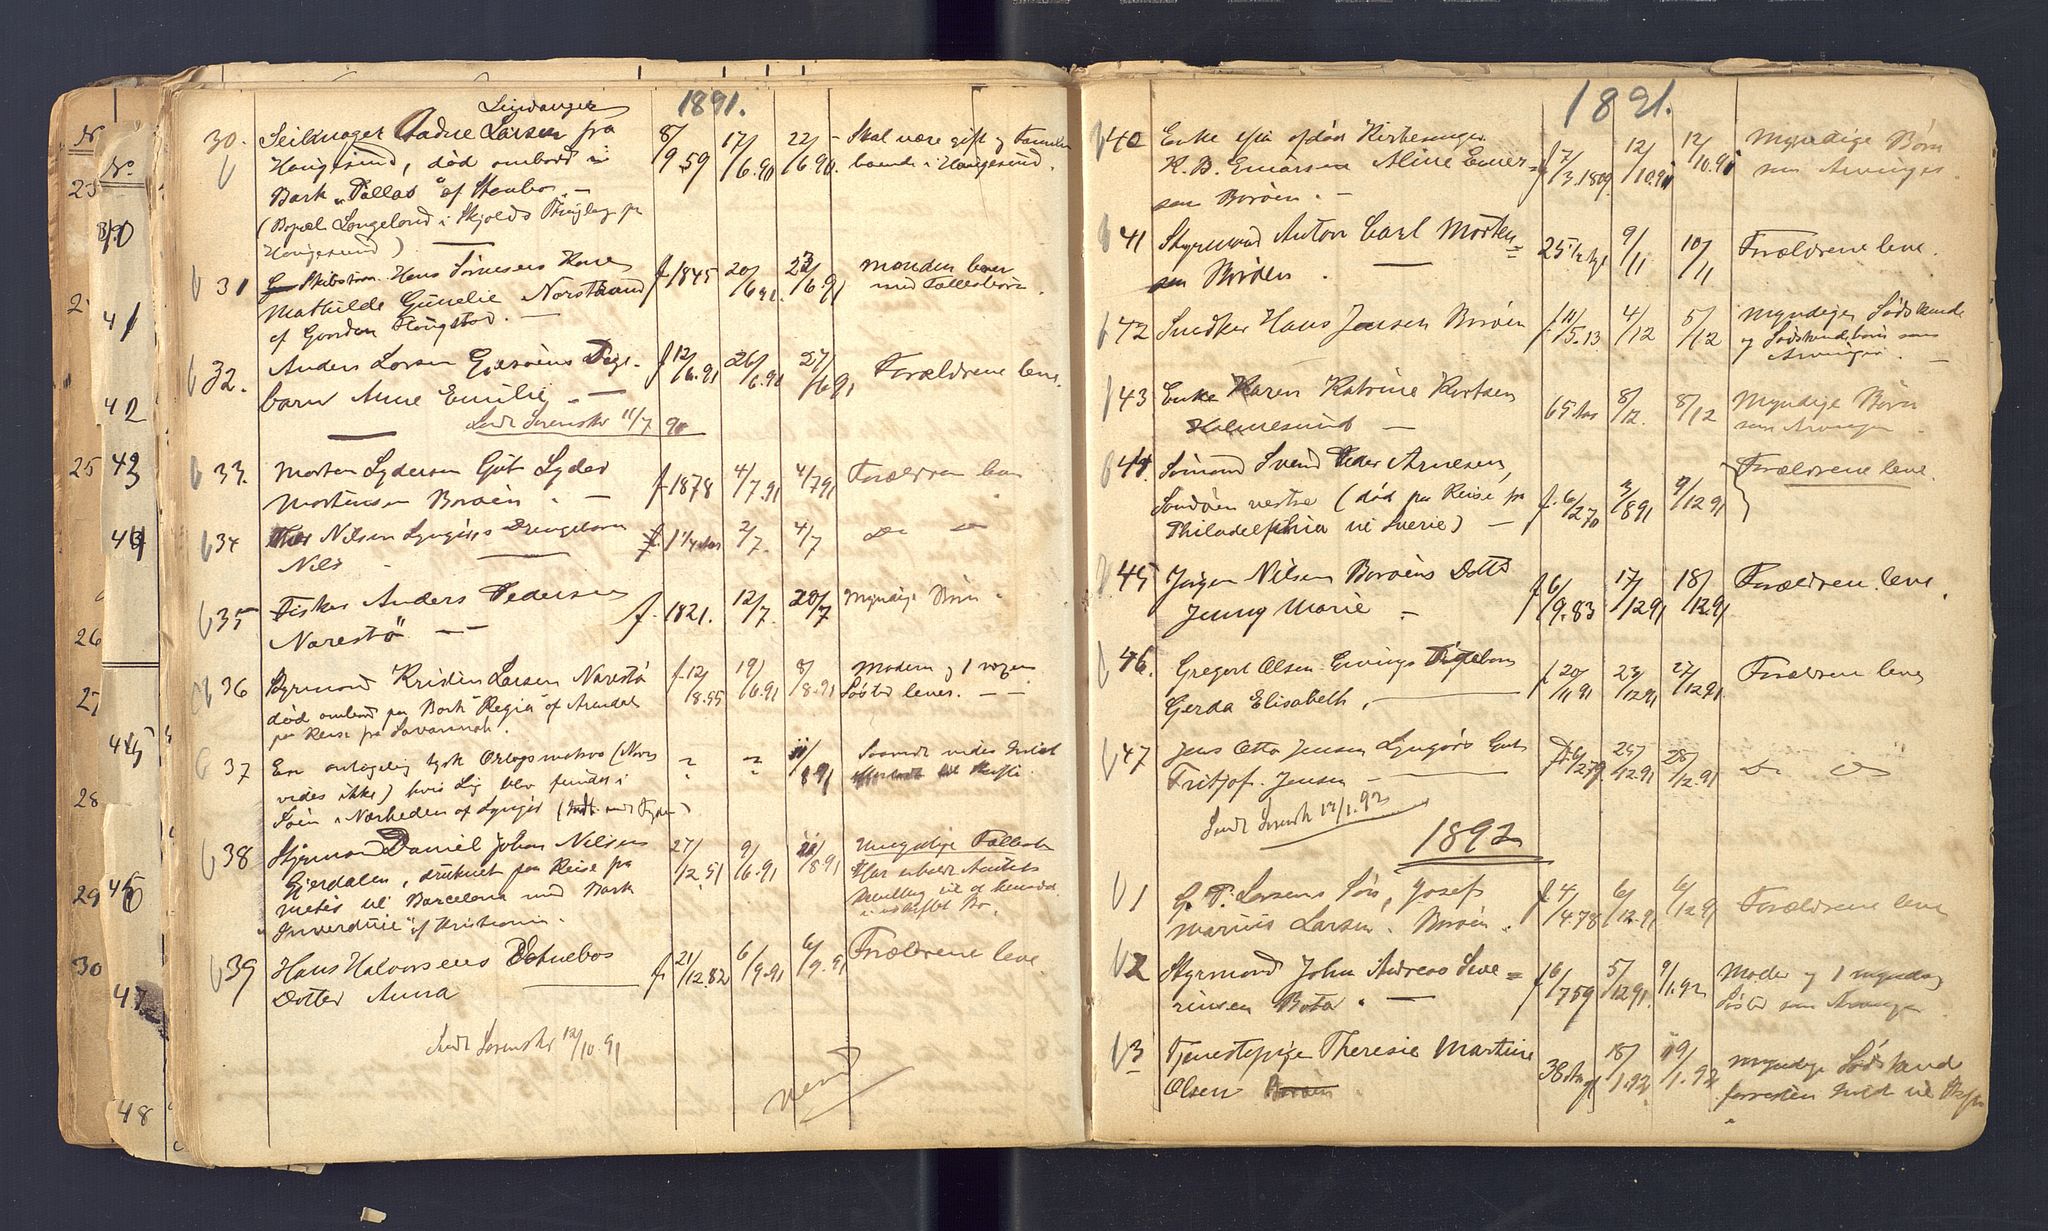 1891.
30. Seilmager Ladne Larsen fra 8/9 59 17/6.90 22/6.90. Skal være gift og Familien
Haugesund, død ombord i boende i Haugesund.
Bark "Pallas" af Stavbo. —
(Bopæl Langeland i Skjolds Thinglag pr
Haugesund)
31 Skibstøm. Hans Sørensens Kone f. 1845 20/6 91. 23/6.91 Manden lever
Mathilde Gunelie Narstrand med Fællesbørn.
af Gaarden Haugstad. —
32. Anders Larsen Gjesøens Pige- f. 12/6.91 26/6.91 27/6 91 Forældrene leve.
barn Anne Emilie. —
Sendt Sorensk 11/7 91
33. Morten Lydersen Gut Lyder f. 1878 4/7.91 4/7 91 Forældrene leve
Mortensen Borøen. —
34 Nilsen Lyngørs Drengebarn f. 1 1/4 Aar 2/7. 4/7 Do Do
Nils
35 Fisker Anders Pedersen f. 1821. 12/7. 20/7 Myndige Børn.
Narestø — —
36 Styrmand Kristen Larsen Narestø f. 12/8.55 19/6.91 8/8.91 Moderen og 1 voxen
død ombord paa Bark "Regia" af Arendal Søster lever. — —
paa Reise fra Savannah.
37 En antagelig tysk Orlogsmatros (Navn ? ? 11/8.91
vides ikke) hvis Lig blev fundet i
Søen i Nærheden af Lyngør
38 Styrmand Daniel Johan Nilsen 27/12.51 9/6.91 11/8.91 Umyndige Fællesb
Gjerdalen, druknet paa Reise fra Har erholdt Amtets
Methil til Barcelona med Bark Bevilling til at hensidde
"Inverdruie" af Kristiania. i uskiftet Bo.
39 Hans Halvorsens Østuebøs f. 21/12.82 6/9.91 6/9.91 Forældrene leve.
Dotter Anna
Sendt Sorensk 12/10.91
Vend
1891.
40 Enke efter afdøde Kirkesanger f 7/3.1809 12/10.91 12/10.91 Myndige Børn
K. B. Emarsen Aline Emer= som Arvinger.
sen Borøen. —
41 Styrmand Anton Carl Morten= 25 1/2 Aar 9/11 10/11 Forældrene leve.
sen Borøen. —
42 Snedker Hans Jensen Borøen f. 11/5.13 4/12 5/12 Myndige Sødskende
og Sødskendebørn som
Arvinger. —
43 Enke Karen Katrine Knutsen 65 Aar 8/12. 8/12 Myndige Børn
Holmesund — som Arvinger.
44 Sømand Svend Peder Arnesen, f. 6/2 70 3/8 91 9/12 91 Forældrene leve.
Sandøen vestre (død paa Reise fra
Philadelphia til Sverie) —
45 Jørgen Nilsen Borøens Dotter f 6/9.83 17/12 91 18/12 91 Forældrene leve.
Jenny Marie —
46. Gregert Olsen Pigebarn f. 20/11 91 23/12 91 27/12 91. Forældrene leve
Gerda Elisabeth, —
47 Jens Otto Jensen Lyngørs Gut 6/2 79 25/12.91 28/12.91 Do Do
Fritjof. Jensen —
Sendt Sorensk 12/1.92
1892
1 G. P. Larsens Søn, Josef f 4/4 78 6/12.91 6/12 91 Forældrene leve
Marius Larsen. Borøen.
2 Styrmand John Andreas Seve= f 6/7 59 5/12 91. 9/1.92 Moder og 1 myndig
rinsen Bota. — Søster som Arvinger
3 Tjenestepige Theresie Martine 38 Aar gl 18/1.92 19/1.92 Myndige Sødskend
Olsen Borøen. forresten henvist til Skifte
N
No
40
41
42
43
44
45
47
48
25
26
27
28
29
30